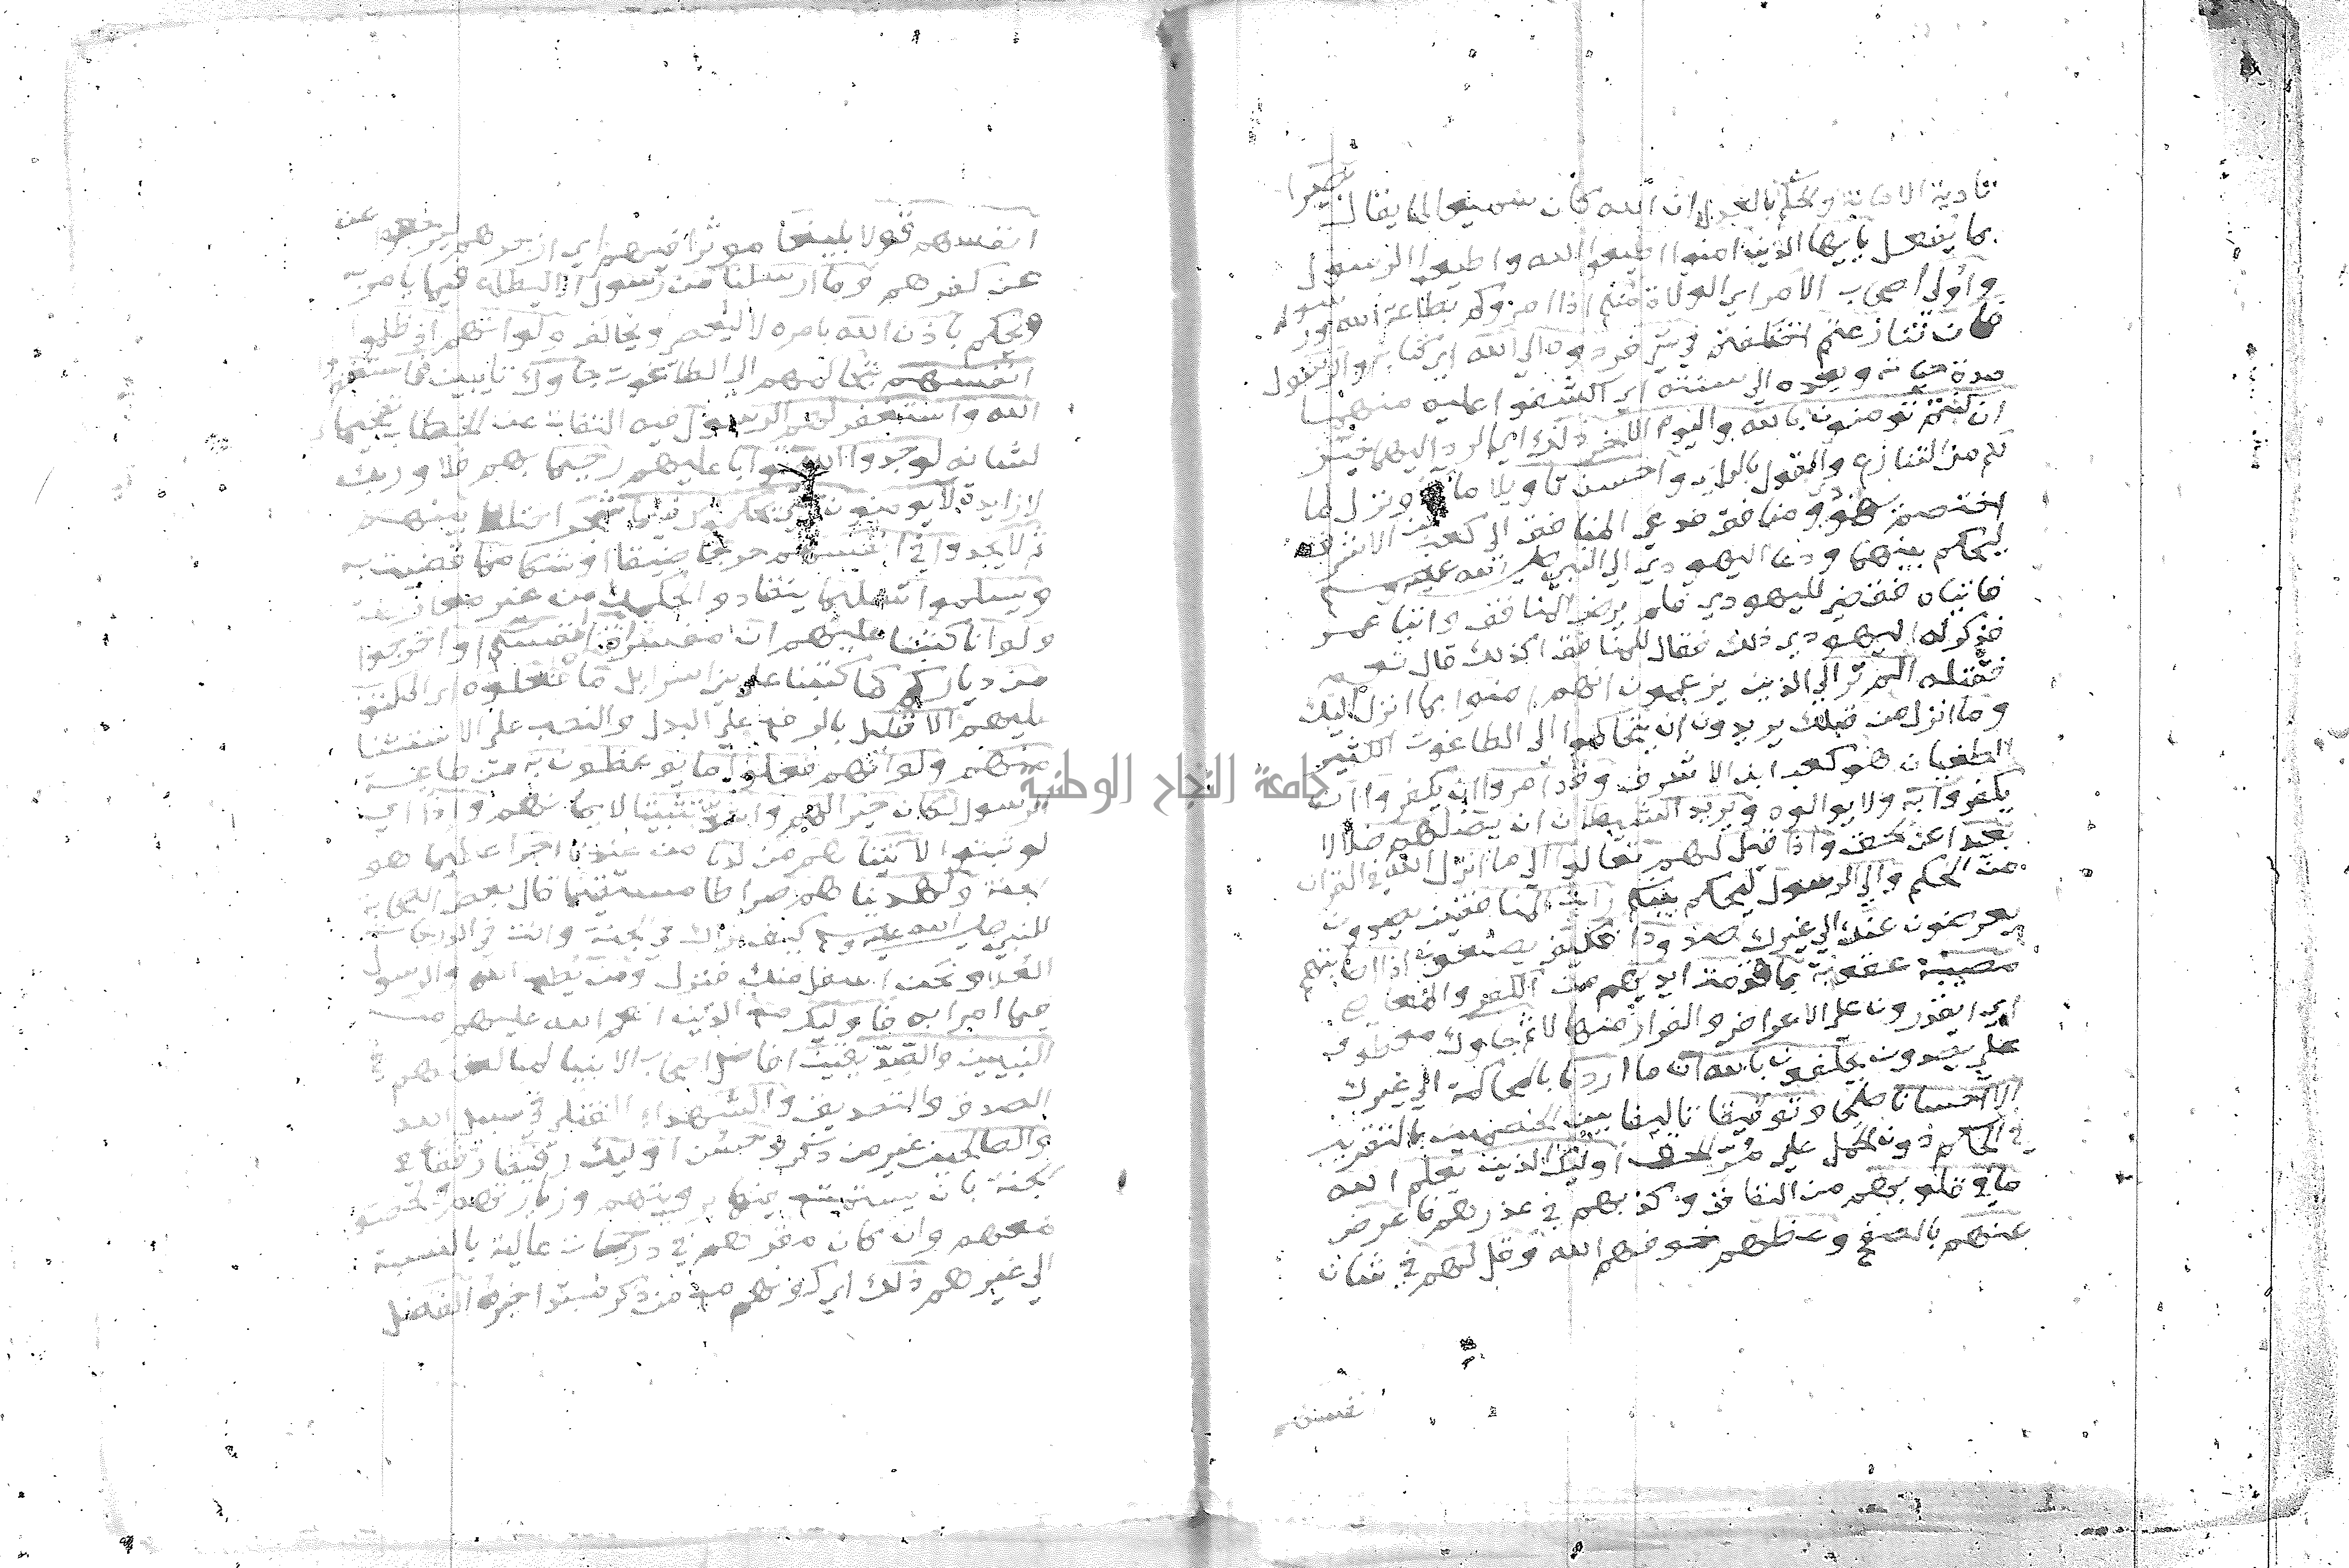 تادية الامانة والحكم بالعدل ان الله كان سميعا لما يقال بصيرا
بما يفعل يايها الذين امنوا اطيعوا الله واطيعوا الرسول
واولي اصحاب الامر اي الولاة منكم اذا امروكم بطاعة الله ورسوله
فان تنازعتم اختلفتم في شي فردوه الي الله اي كتابه والرسول
مدة حياته وبعده الي سنته اي اكشفوا عليه منهما
ان كنتم تومنون بالله واليوم الاخر ذلك اي الرد اليهما خير
لكم من التنازع والقول بالراي واحسن تاويلا مالا ونزل لما
اختصم يهودي ومنافق فدعي المنافق الي كعب بن الاشرف
ليحكم بينهما ودعا اليهودي الي النبي صلي الله عليه وسلم
فاتياه فقضي لليهودي فلم يرض المنافق واتيا عمر
فذكر له اليهودي ذلك فقال للمنافق اكذلك قال نعم
فقتله الم تر الي الذين يزعمون انهم امنوا بما انزل اليك
وما انزل من قبلك يريدون ان يتحاكموا الي الطاغوت الكثير
الطغيان هو كعب ابن الاشرف وقد امروا ان يكفروا
يكفروا به ولا يوالوه ويريد الشيطان ان يضلهم ضلالا
بعيدا عن الحق واذا قيل لهم تعالوا الي ما انزل الله في القران
من الحكم والي الرسول ليحكم بينكم رايت المنافقين يصدون
يعرضون عنك الي غيرك صدودا فكيف يصنعون اذا اصابتهم
مصيبة عقوبة بما قدمت ايديهم من الكفر والمعاصي
اي ايقدرون علي الاعراض والفرار منها لا ثم جاوك معطوف
علي يصدون يحلفون بالله ان ما اردنا بالمحاكمة الي غيرك
الا احسانا صلحا وتوفيقا تاليفا بين الخصمين بالتقريب
في الحكم دون الحمل علي مر الحق اوليك الذين يعلم الله
ما في قلوبهم من النفاق وكذبهم في عذرهم فاعرض
عنهم بالصفح وعظهم خوفهم الله وقل لهم في شان
انفسهم
انفسهم قولا بليغا موثرا فيهم اي ازجرهم ليرجعوا عن
عن كفرهم وما ارسلنا من رسول الا ليطاع فيما يامر به
ويحكم باذن الله بامره لا ليعصي ويخالف ولو انهم اذ ظلموا
انفسهم بتحاكمهم الي الطاغوت جاوك تايبين فاستغفروا
الله واستغفر لهم الرسول فيه التفات عن الخطاب تفخيما
لشانه لوجدوا الله توابا عليهم رحيما بهم فلا وربك
لا زايدة لا يومنون حتي يحكموك فيما شجر اختلط بينهم
ثم لا يجدوا في انفسهم حرجا ضيقا او شكا مما قضيت به
ويسلموا تسليما ينقادوا لحكمك من غير معارضة
ولو انا كتبنا عليهم ان مفسرة اقتلوا انفسكم او اخرجوا
من دياركم كما كتبنا علي بني اسرايل ما فعلوه اي المكتوب
عليهم الا قليل بالرفع علي البدل والنصب علي الاستثنا
منهم ولو انهم فعلوا ما يوعظون به من طاعة
الرسول لكان خيرا لهم واشد تثبيتا لايمانهم واذا اي
لو ثبتوا لاتيناهم من لدنا من عندنا اجرا عظيما هو
الجنة ولهديناهم صراطا مستقيما قال بعض الصحابة
للنبي صلي الله عليه وسلم كيف نراك في الجنة وانت في الدرجات
العلا ونحن اسفل منك فنزل ومن يطع الله والرسول
فيما امرا به فاوليك مع الذين انعم الله عليهم من
النبيين والصديقين افاضل اصحاب الانبيا لمبالغتهم في
الصدق والتصديق والشهداء القتلي في سبيل الله
والصالحين غير من ذكر وحسن اوليك رفيقا رفقا في
الجنة بان يستمتع فيها برويتهم وزيارتهم والحضور
معهم وان كان مقرهم في درجات عالية بالنسبة
الي غيرهم ذلك اي كونهم مع من ذكر مبتدا خبره الفضل
جامعة النجاح الوطنية